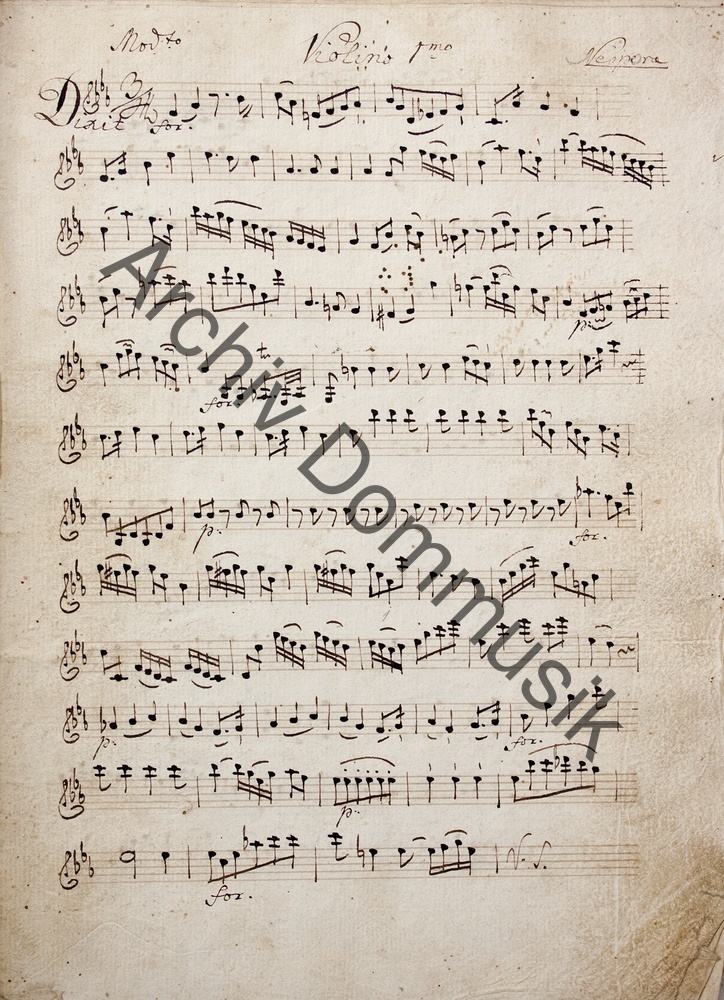 Mod.to Violino 1mo Vespera
Dixit for.
p:
for. tr
p. for.
p: for.
p.
for. V. S.
Archiv Dommusik